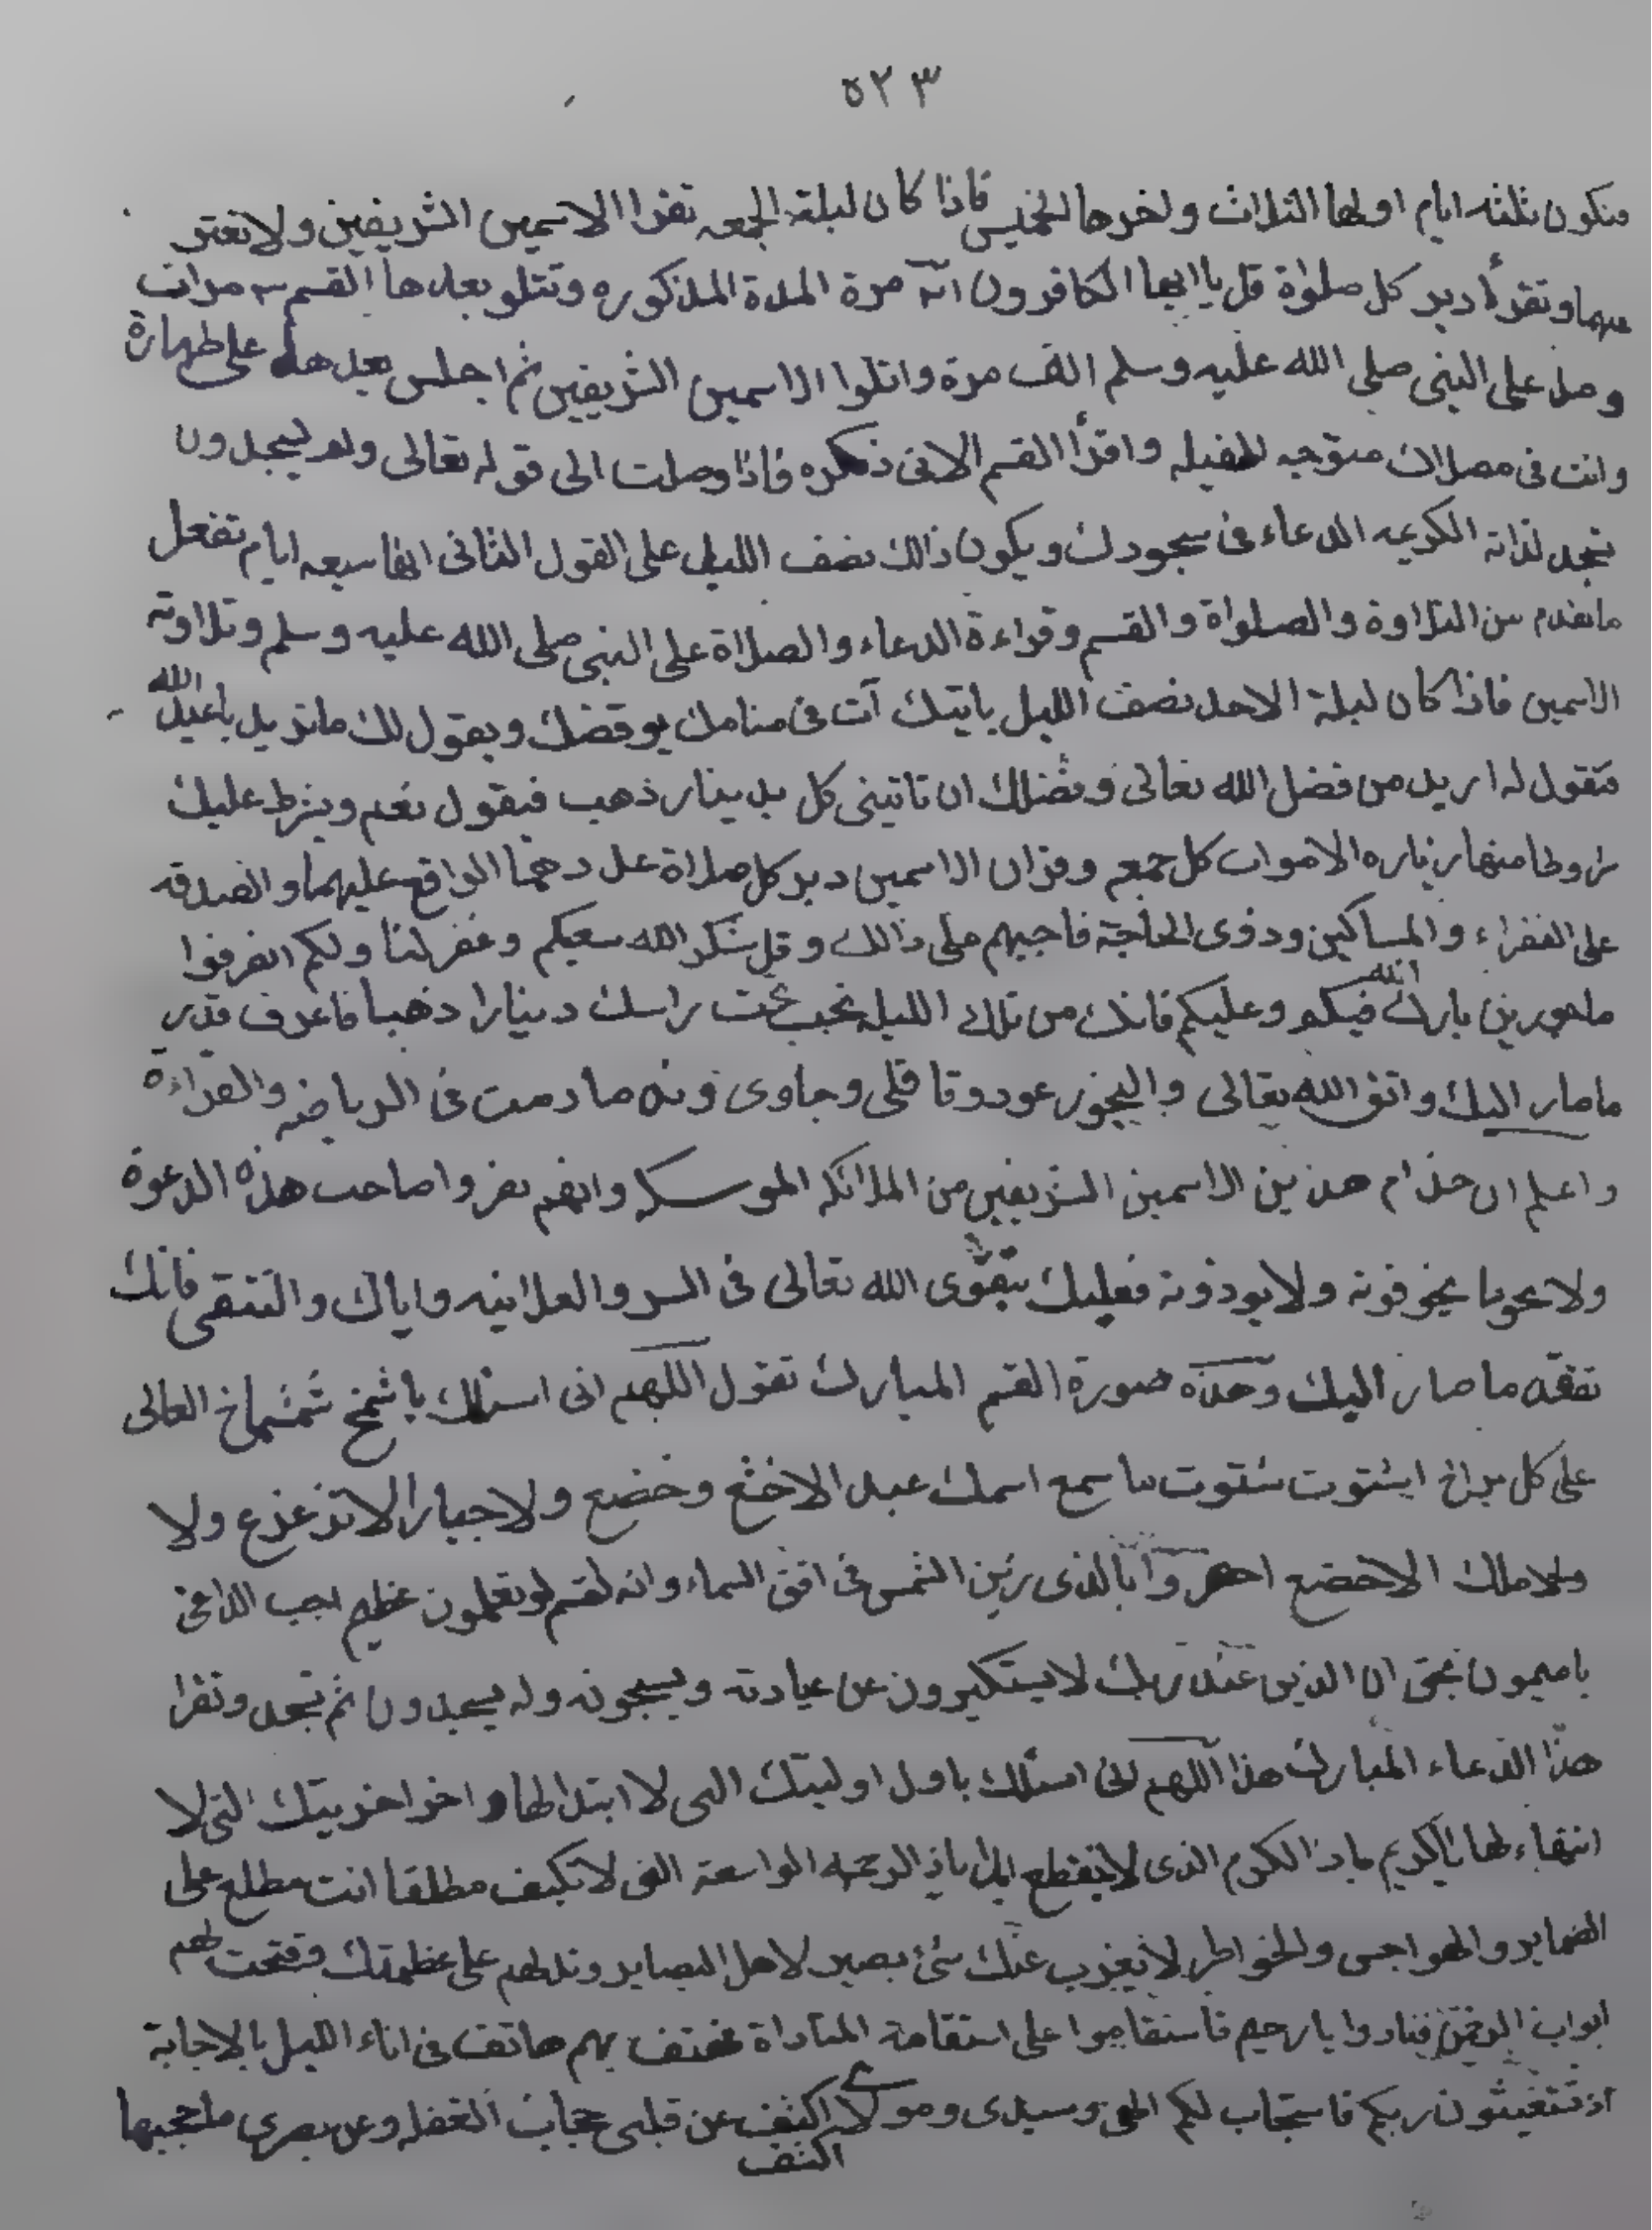 ٥٢٣
فتكون ثلثه ايام اولها الثلاث واخرها الخميس فاذا كان ليلة الجمعه تقرا الاسمين الشريفين ولا تفتر
عنهما وتقرأ دبر كل صلواة قل يا ايها الكافرون مرة المدة المذكوره وتتلو بعدها القسم ٣ مرات
وصل على النبى صلى الله عليه وسلم الف مرة واتلوا الاسمين الشريفين ثم اجلس بعدها على طهارة
وانت فى مصلاك متوجه للقبله واقرأ القسم الاتى ذكره فاذا وصلت الى قوله تعالى وله يسجدون
تسجد لذاته الكريمه الدعاء فى سجودك ويكون ذالك نصف الليل على القول الثانى انها سبعه ايام تفعل
ما تقدم من التلاوة والصلواة والقسم وقراءة الدعاء والصلاة على النبى صلى الله عليه وسلم وتلاوته
الاسمين فاذا كان ليلة الاحد نصف الليل ياتيك آت فى منامك يوقضك ويقول لك ما تريد يا عبد الله
فتقول له اريد من فضل الله تعالى وفضلك ان تاتينى كل بدينار ذهب فيقول نعم ويشرط عليك
شروطا منها زياره الاموات كل جمعه وقران الاسمين دبر كل صلاة عددهما الواقع عليهما والصدقه
على الفقراء والمساكين وذوى الحاجة فاجبهم على ذالك وقل شكر الله سعيكم وغفر لنا ولكم انصرفوا
ماجورين بارك الله فيكم وعليكم فانك من تلك الليله تجب تحت راسك دينارا ذهبا فاعرف قدر
ما صار اليك واتق الله تعالى والبخور عود وقاقلى وجاوى وند ما دمت فى الرياضه والقراءة
واعلم ان خدام هذين الاسمين الشريفين من الملائكه وانهم صاحب هذه الدعوة
ولا يخوفونه ولا يوذونه فعليك بتقوى الله تعالى فى السر والعلانيه واياك والتقى فانك
تفقد ما صار اليك وهذه صورة القسم المبارك تقول اللهم انى اسئلك يا شمخ شمشماخ العالى
على كل براخ ايشتوت شتوت ما سمع اسمك عبد الا خشع وخضع ولا جبارا الا تزعزع ولا
ولا ملك الا خضع بالذى زين الشمس فى افق السماء وانه لقسم لو تعلمون عظيم اجب الداعى
يا ميمون بحق ان الذين عند ربك لا يستكبرون عن عبادته ويسبحونه وله يسجدون ثم تسجد وتقرا
هذا الدعاء المبارك هذا اللهم انى اسئلك باول اوليتك التى لا ابتدا لها واخر اخريتك التى لا
انتهاء لها يا كريم ياذا الكرم الذى لا ينقطع ابدا ياذا الرحمه الواسعة التى لا تكيف مطلقا انت مطلع على
الضماير والهواجس والخواطر لا يعزب عنك شئ بصير لاهل البصاير وتدلهم على عظمتك وفتحت لهم
ابواب فنادوا يا رحيم فاستقاموا على استقامة المناداة فهتف بهم هاتف فى اناء الليل بالاجابة
اذ تستغيثون ربكم فاستجاب لكم الهى وسيدى ومولاى اكشف عن قلبى حجاب الغفله وعن بصرى ما حجبها
اكشف